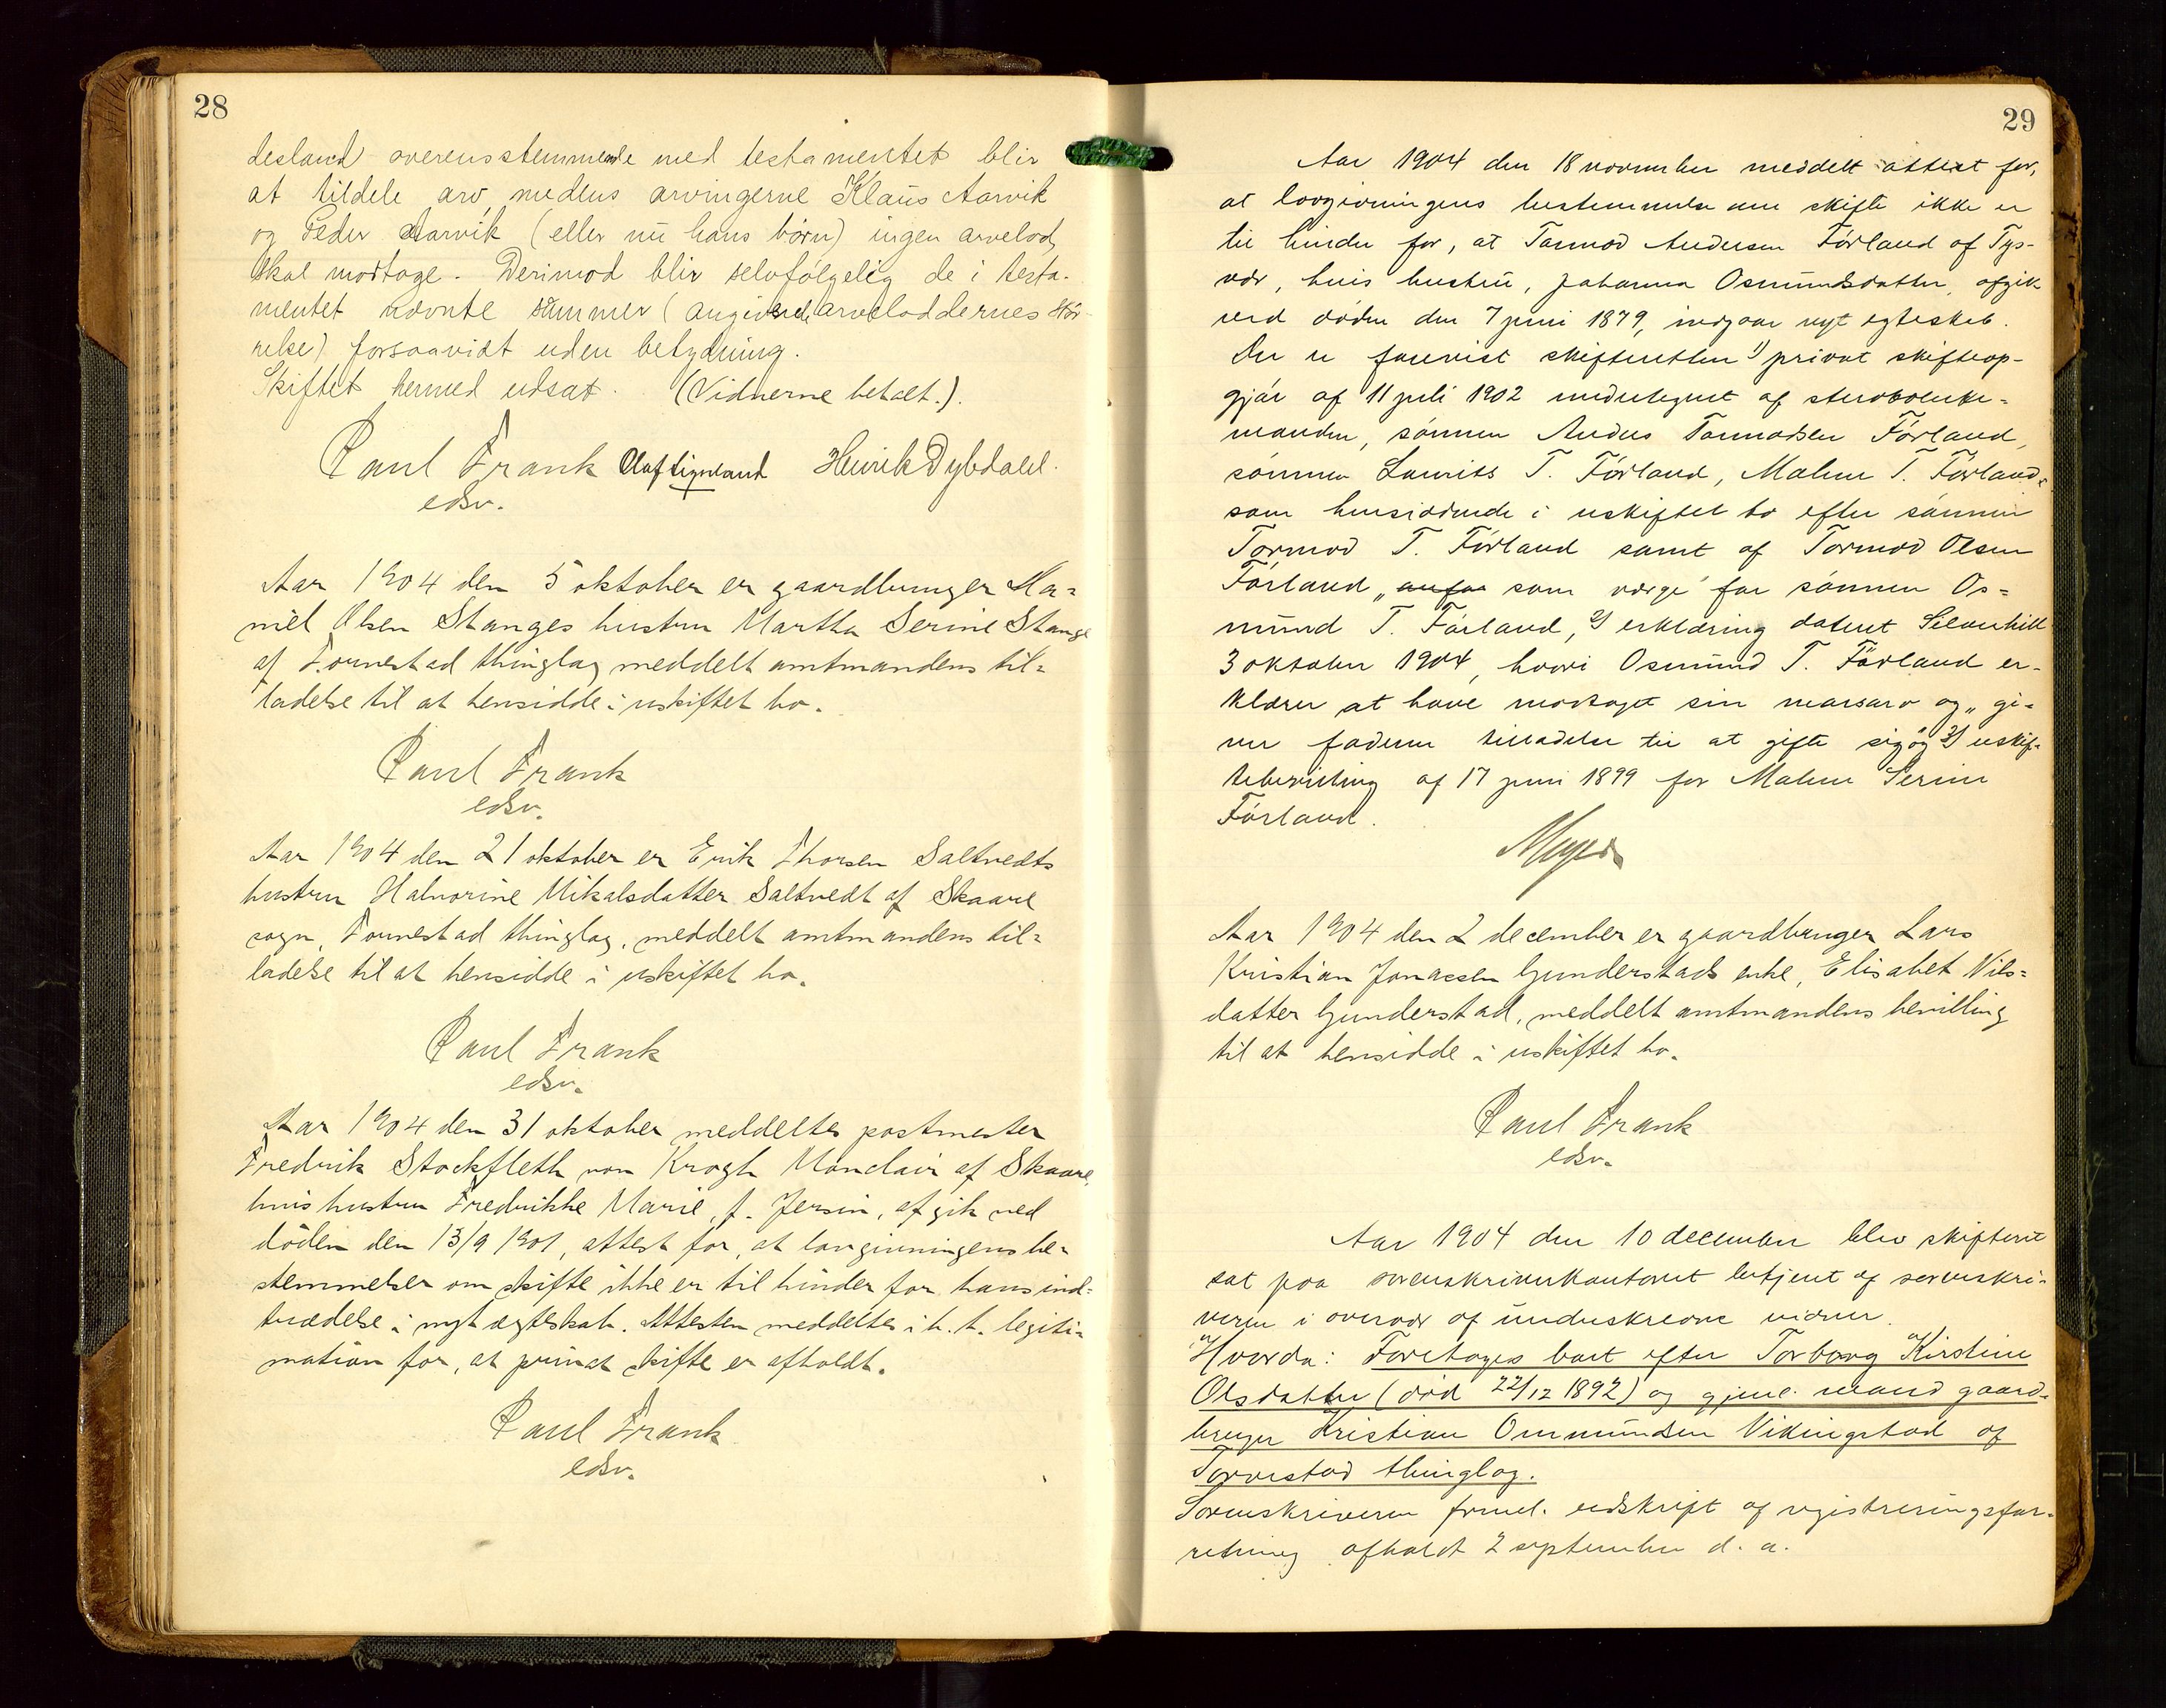 28
desland overensstemmende med testamentet blir
at tildele arv medens arvingerne Klaus Aarvik
og Peder Aarvik (eller nu hans børn) ingen arvelod
skal modtage. Derimod blir selvfølgelig de i testa-
mentet nævnte summer (angivende arveloddernes stør-
relse) forsaavidt uden betydning.
Skiftet hermed udsat. (Vidnerne betalt.).
Paul Frank Olaf Henrik Dybdahl.
edsv.
Aar 1904 den 5 oktober er gaardbruger Da-
niel Olsen Stanges hustru Martha Serine Stange
af Torvestad thinglag meddelt amtmandens til-
ladelse til at hensidde i uskiftet bo.
Paul Frank
edsv.
Aar 1904 den 21 oktober er Erik Thorsen Saltvedts
hustru Halvorine Mikalsdatter Saltvedt af Skaare
sogn, Torvestad thinglag, meddelt amtmandens til-
ladelse til at hensidde i uskiftet bo.
Paul Frank
edsv.
Aar 1904 den 31 oktober meddeltes postmester
Fredrik Stockfleth von Krogh Monclair af Skaare,
hvis hustru Fredrikke Marie, f. Jersin, afgik ved
døden den 13/9 1901, attest for, at lovgivningens be-
stemmelser om skifte ikke er til hinder for hans ind-
trædelse i nyt ægteskab. Attesten meddeltes i h. t. legiti-
mation for, at privat skifte er afholdt.
Paul Frank
edsv.
29
Aar 1904 den 18 november meddelt attest for,
at lovgivningens bestemmelse om skifte ikke er
til hinder for, at Tormod Andersen Førland af Tys-
vær, hvis hustru, Johanna Osmundsdatter, afgik
ved døden den 7 juni 1879, indgaar nyt egteskab.
Der er forevist skifteretten 1) privat skifteop-
gjør af 11 juli 1902 undertegnet af sterbolenke-
manden, sønnen Andus Tormodsen Førland,
sønnen Laurits T. Førland, Malene T. Førland,
som hensiddende i uskiftet bo efter sønnen
Tormod T. Førland samt af Tormod Olsen
Førland, som værge for sønnen Os-
mund T. Førland, 2) erklæring dateret Silverhill
3 oktober 1904, hvori Osmund T. Førland er-
klærer at have modtaget sin morsarv og „gi-
ver faderen tilladelse til at gifte sig" og 3) uskif-
tebevilling af 17 juni 1899 for Malene Serine
Førland.
Meyer
Aar 1904 den 2 december er gaardbruger Lars
Kristian Jonassen Gunderstads enke, Elisabet Nils-
datter Gunderstad, meddelt amtmandens bevilling
til at hensidde i uskiftet bo.
Paul Frank
edsv.
Aar 1904 den 10 december blev skifteret
sat paa sorenskriverkontoret betjent af sorenskri-
veren i overvær af underskrevne vidner.
Hvorda: Foretages boet efter Torborg Kirstine
Olsdatter (død 22/12 1892) og gjenl. mand gaard-
bruger Kristian Ommundsen Vikingstad af
Torvestad thinglag.
Sorenskriveren freml. udskrift af registreringsfor-
retning afholdt 2 september d. a.